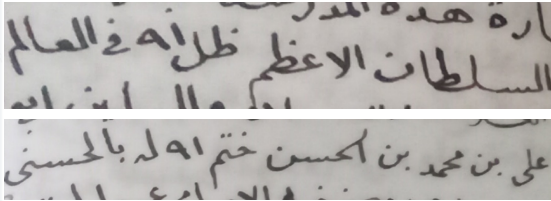 ارة هذه المدرسة
السلطان الاعظم ظل الله في العالم
علي بن محمد بن الحسن ختم الله له بالحسنى